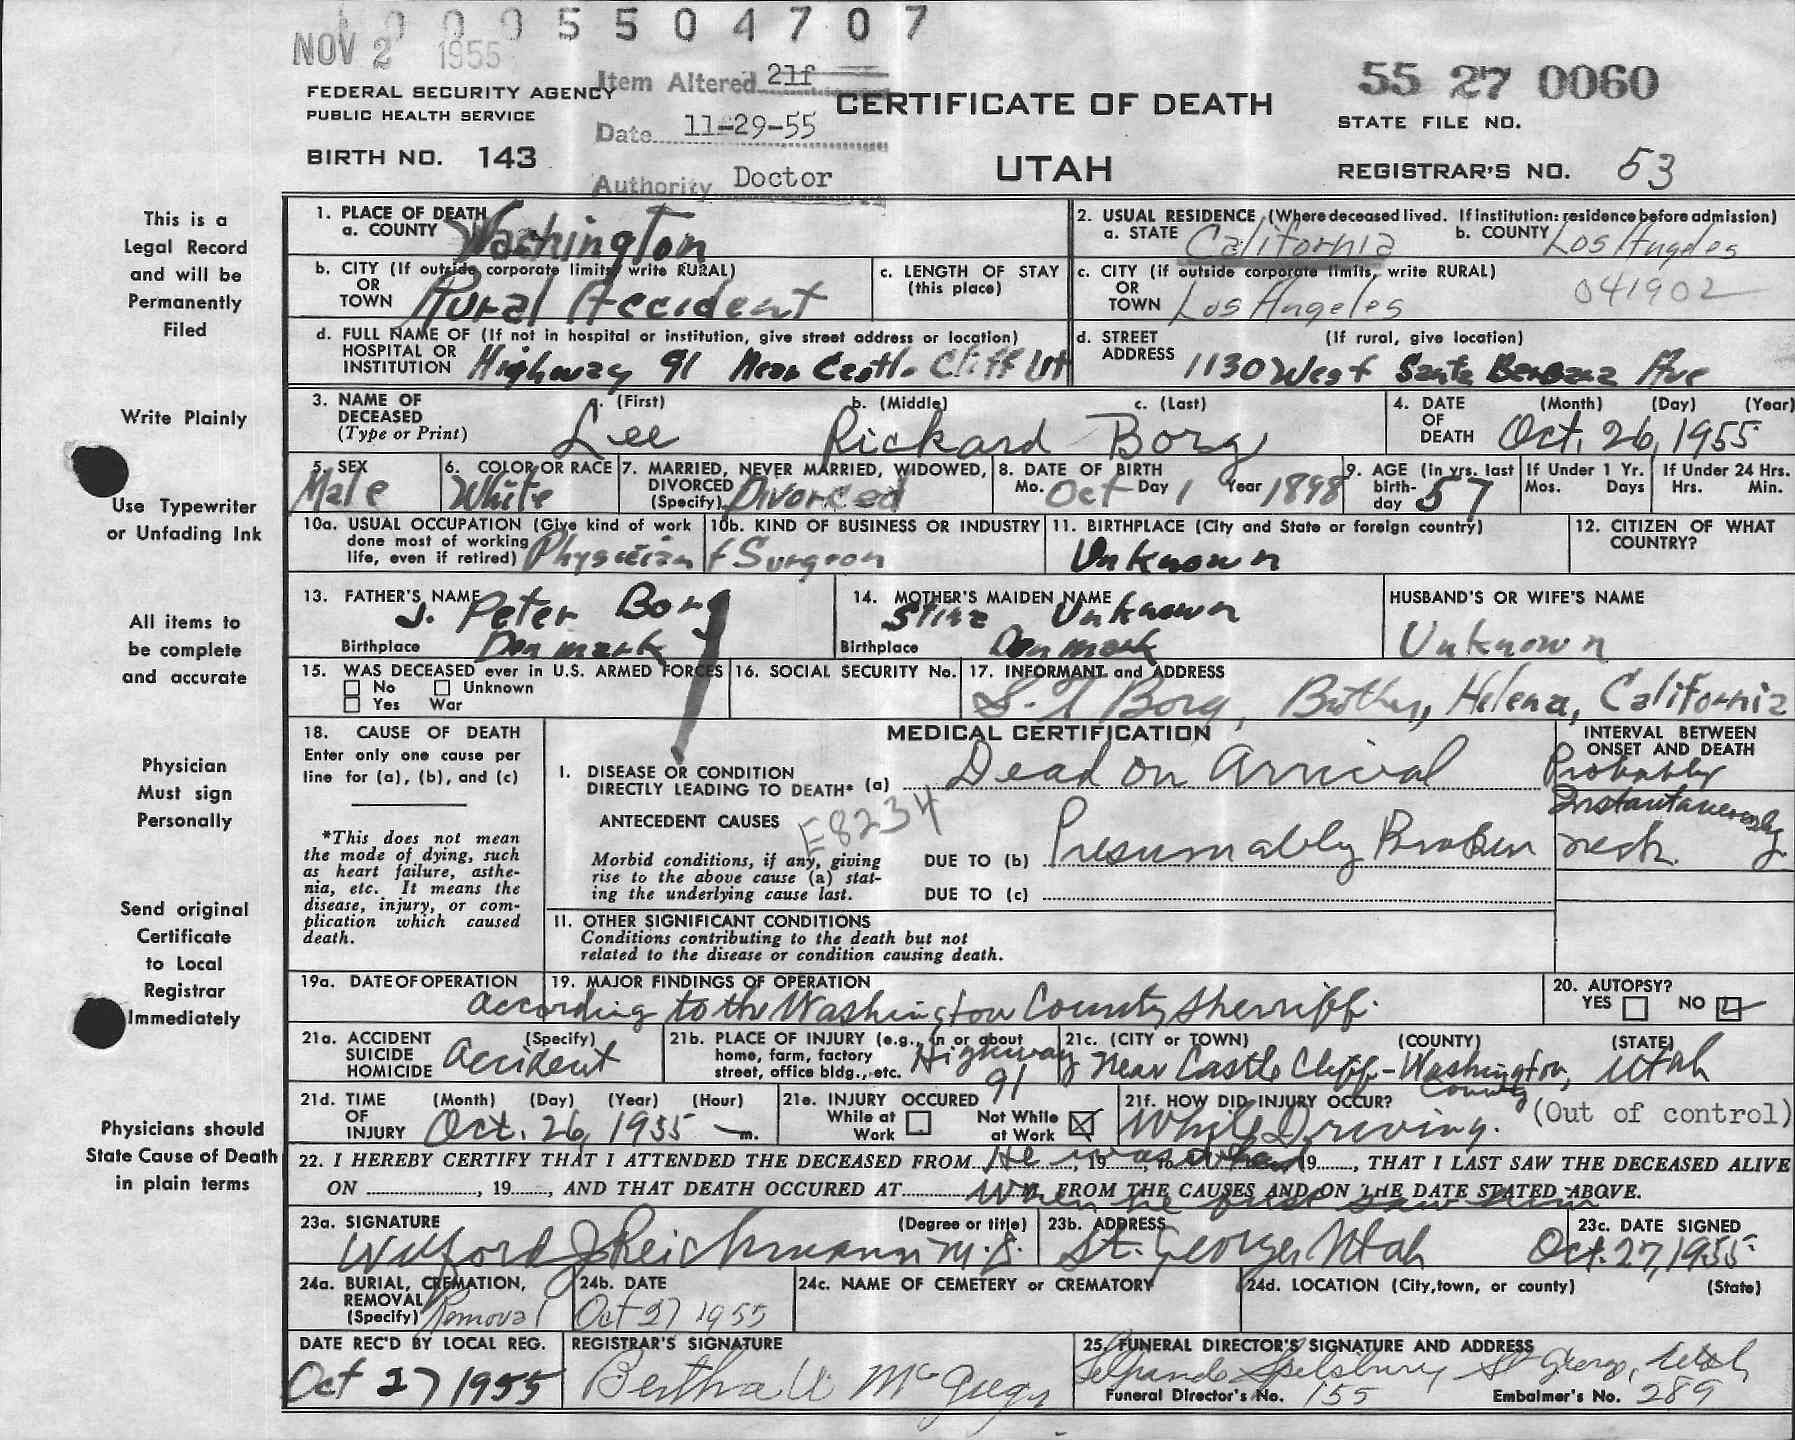 0005504707
NOV 2 1955
FEDERAL SECURITY AGENCY
PUBLIC HEALTH SERVICE
BIRTH NO. 143
Item Altered 21f
Date 11-29-55
Authority Doctor
CERTIFICATE OF DEATH
UTAH
55 27 0060
STATE FILE NO.
REGISTRAR'S NO. 53
This is a
Legal Record
and will be
Permanently
Filed
Write Plainly
Use Typewriter
or Unfading Ink
All items to
be complete
and accurate
Physician
Must sign
Personally
Send original
Certificate
to Local
Registrar
Immediately
Physicians should
State Cause of Death
in plain terms
1. PLACE OF DEATH
a. COUNTY Washington
2. USUAL RESIDENCE (Where deceased lived. If institution: residence before admission)
a. STATE California b. COUNTY Los Angeles
b. CITY (If outside corporate limits, write RURAL)
OR
TOWN Rural Accident
c. LENGTH OF STAY
(this place)
c. CITY (if outside corporate limits, write RURAL)
OR
TOWN Los Angeles 041902
d. FULL NAME OF (If not in hospital or institution, give street address or location)
HOSPITAL OR
INSTITUTION Highway 91 Near Castle Cliff Ut
d. STREET (If rural, give location)
ADDRESS 1130 West Santa Barbara Ave
3. NAME OF
DECEASED
(Type or Print)
a. (First) b. (Middle) c. (Last)
Lee Rickard Borg
4. DATE (Month) (Day) (Year)
OF
DEATH Oct. 26, 1955
5. SEX
Male
6. COLOR OR RACE
White
7. MARRIED, NEVER MARRIED, WIDOWED,
DIVORCED
(Specify) Divorced
8. DATE OF BIRTH
Mo. Oct Day 1 Year 1898
9. AGE (in yrs. last
birth-
day 57
If Under 1 Yr.
Mos. Days
If Under 24 Hrs.
Hrs. Min.
10a. USUAL OCCUPATION (Give kind of work
done most of working
life, even if retired) Physician
10b. KIND OF BUSINESS OR INDUSTRY
& Surgeon
11. BIRTHPLACE (City and State or foreign country)
Unknown
12. CITIZEN OF WHAT
COUNTRY?
13. FATHER'S NAME
J. Peter Borg
Birthplace Denmark
14. MOTHER'S MAIDEN NAME
Unknown
Birthplace Denmark
HUSBAND'S OR WIFE'S NAME
Unknown
15. WAS DECEASED ever in U.S. ARMED FORCES
No Unknown
Yes War
16. SOCIAL SECURITY No.
17. INFORMANT and ADDRESS
S. T Borg, Brother, Helena, California
18. CAUSE OF DEATH
Enter only one cause per
line for (a), (b), and (c)
*This does not mean
the mode of dying, such
as heart failure, asthe-
nia, etc. It means the
disease, injury, or com-
plication which caused
death.
MEDICAL CERTIFICATION
I. DISEASE OR CONDITION
DIRECTLY LEADING TO DEATH* (a) Dead on Arrival
INTERVAL BETWEEN
ONSET AND DEATH
Probably
Instantaneously
ANTECEDENT CAUSES E8234
Morbid conditions, if any, giving
rise to the above cause (a) stat-
ing the underlying cause last.
DUE TO (b) Presumably Broken neck.
DUE TO (c)
II. OTHER SIGNIFICANT CONDITIONS
Conditions contributing to the death but not
related to the disease or condition causing death.
19a. DATE OF OPERATION
19. MAJOR FINDINGS OF OPERATION
according to the Washington County Sherriff.
20. AUTOPSY?
YES NO
21a. ACCIDENT (Specify)
SUICIDE
HOMICIDE Accident
21b. PLACE OF INJURY (e.g., in or about
home, farm, factory
street, office bldg., etc. Highway
91
21c. (CITY or TOWN) (COUNTY) (STATE)
Near Castle Cliff - Washington, Utah
County
21d. TIME (Month) (Day) (Year) (Hour)
OF
INJURY Oct. 26, 1955 m.
21e. INJURY OCCURED
While at
Work
Not While
at Work
21f. HOW DID INJURY OCCUR?
While Driving. (Out of control)
22. I HEREBY CERTIFY THAT I ATTENDED THE DECEASED FROM He was dead, 19, to 19, THAT I LAST SAW THE DECEASED ALIVE
ON, 19, AND THAT DEATH OCCURED AT m. FROM THE CAUSES AND ON THE DATE STATED ABOVE.
When he first saw him
23a. SIGNATURE (Degree or title)
Wilford J Reichmann M.D.
23b. ADDRESS
St. George, Utah
23c. DATE SIGNED
Oct. 27, 1955
24a. BURIAL, CREMATION,
REMOVAL
(Specify) Removal
24b. DATE
Oct 27 1955
24c. NAME OF CEMETERY or CREMATORY
24d. LOCATION (City, town, or county) (State)
DATE REC'D BY LOCAL REG.
Oct 27 1955
REGISTRAR'S SIGNATURE
Bertha W McGregor
25. FUNERAL DIRECTOR'S SIGNATURE AND ADDRESS
Spilsbury St George, Utah
Funeral Director's No. 155 Embalmer's No. 289